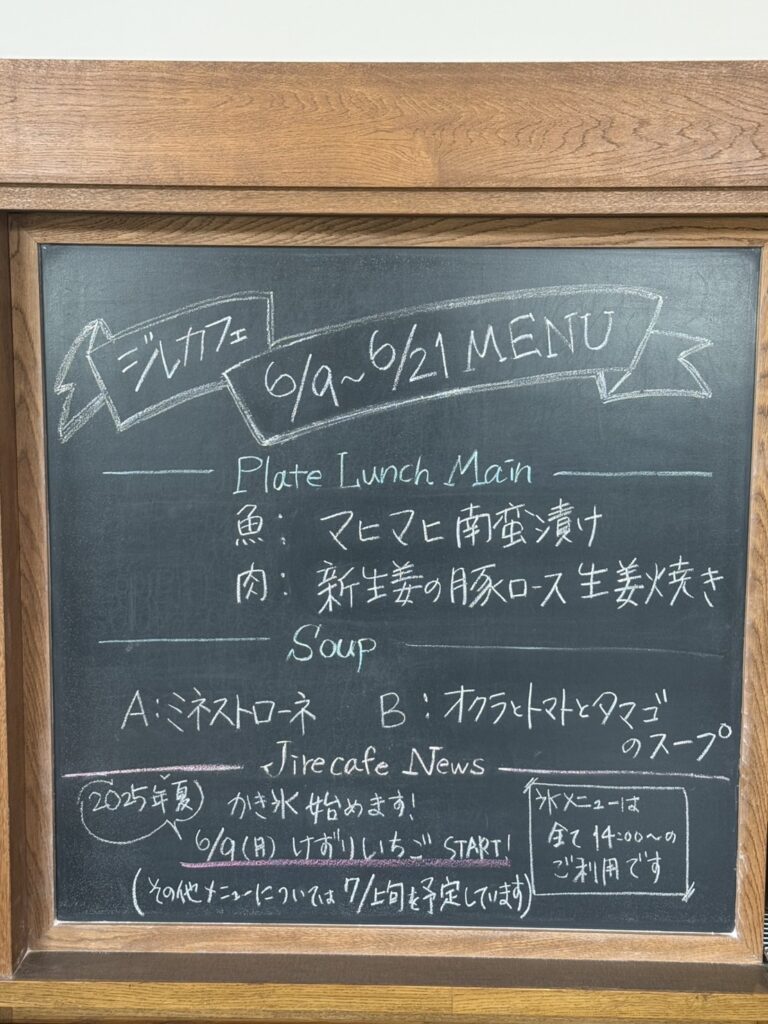 ジルカフェ 6/9~6/21 MENU
Plate Lunch Main
魚: マヒマヒ南蛮漬け
肉: 新生姜の豚ロース生姜焼き
Soup
A:ミネストローネ B:オクラとトマトとタマゴ
のスープ
Jirecafe News
2025年夏 かき氷始めます!
6/9(月) けずりいちご START!
(その他メニューについては7/上旬を予定しています)
氷メニューは
全て14:00~の
ご利用です